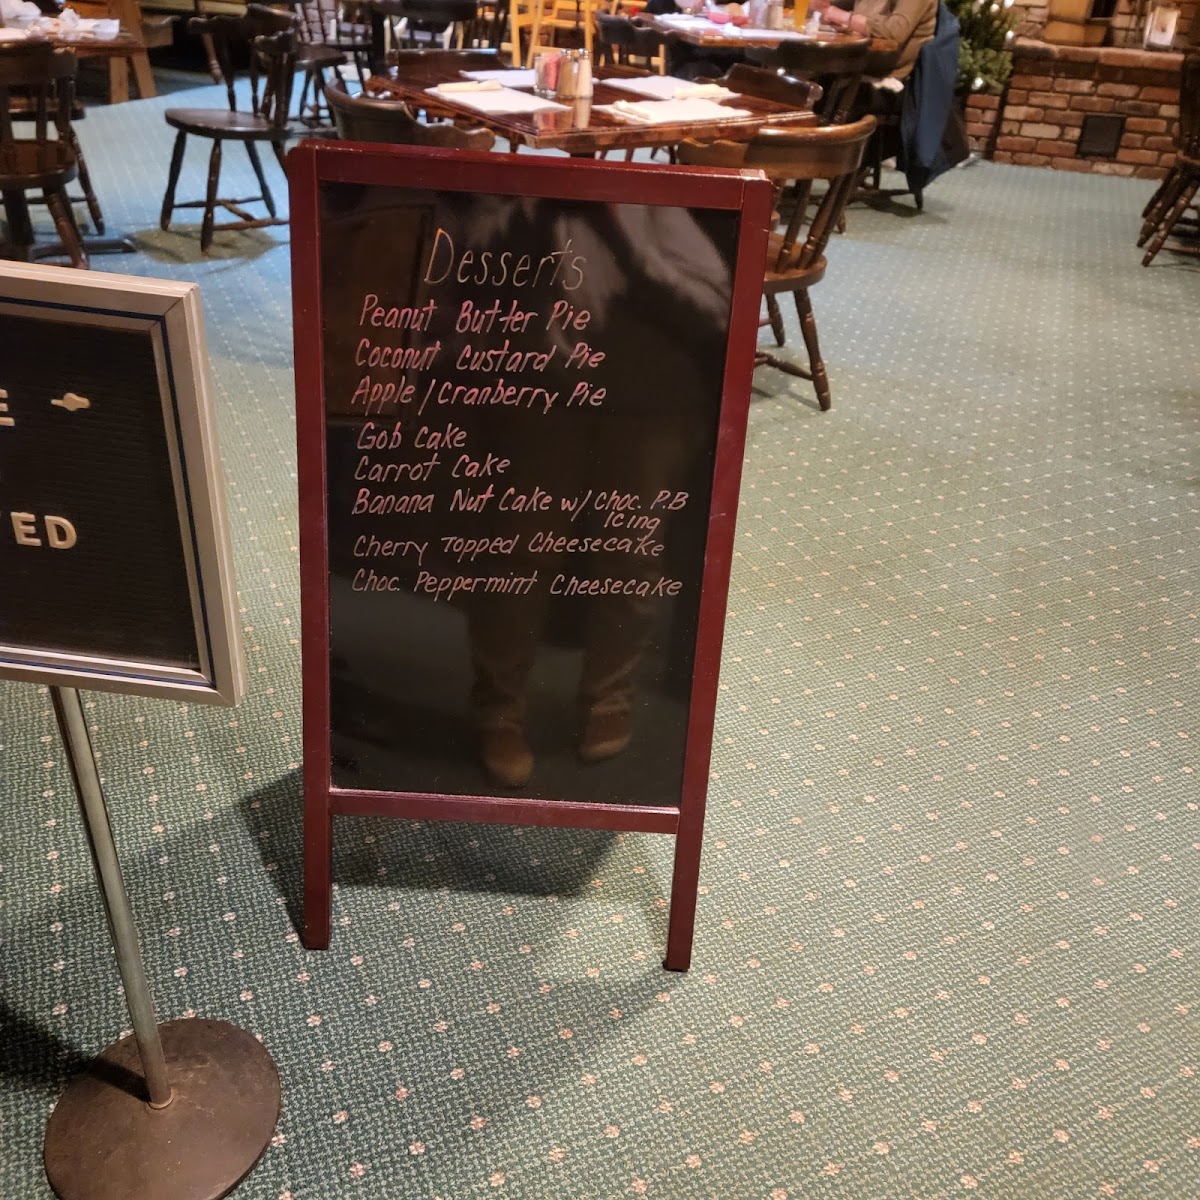 Desserts
Peanut Butter Pie
Coconut Custard Pie
Apple/Cranberry Pie
Gob Cake
Carrot Cake
Banana Nut Cake w/ Choc. P.B
Icing
Cherry Topped Cheesecake
Choc. Peppermint Cheesecake
E
TED